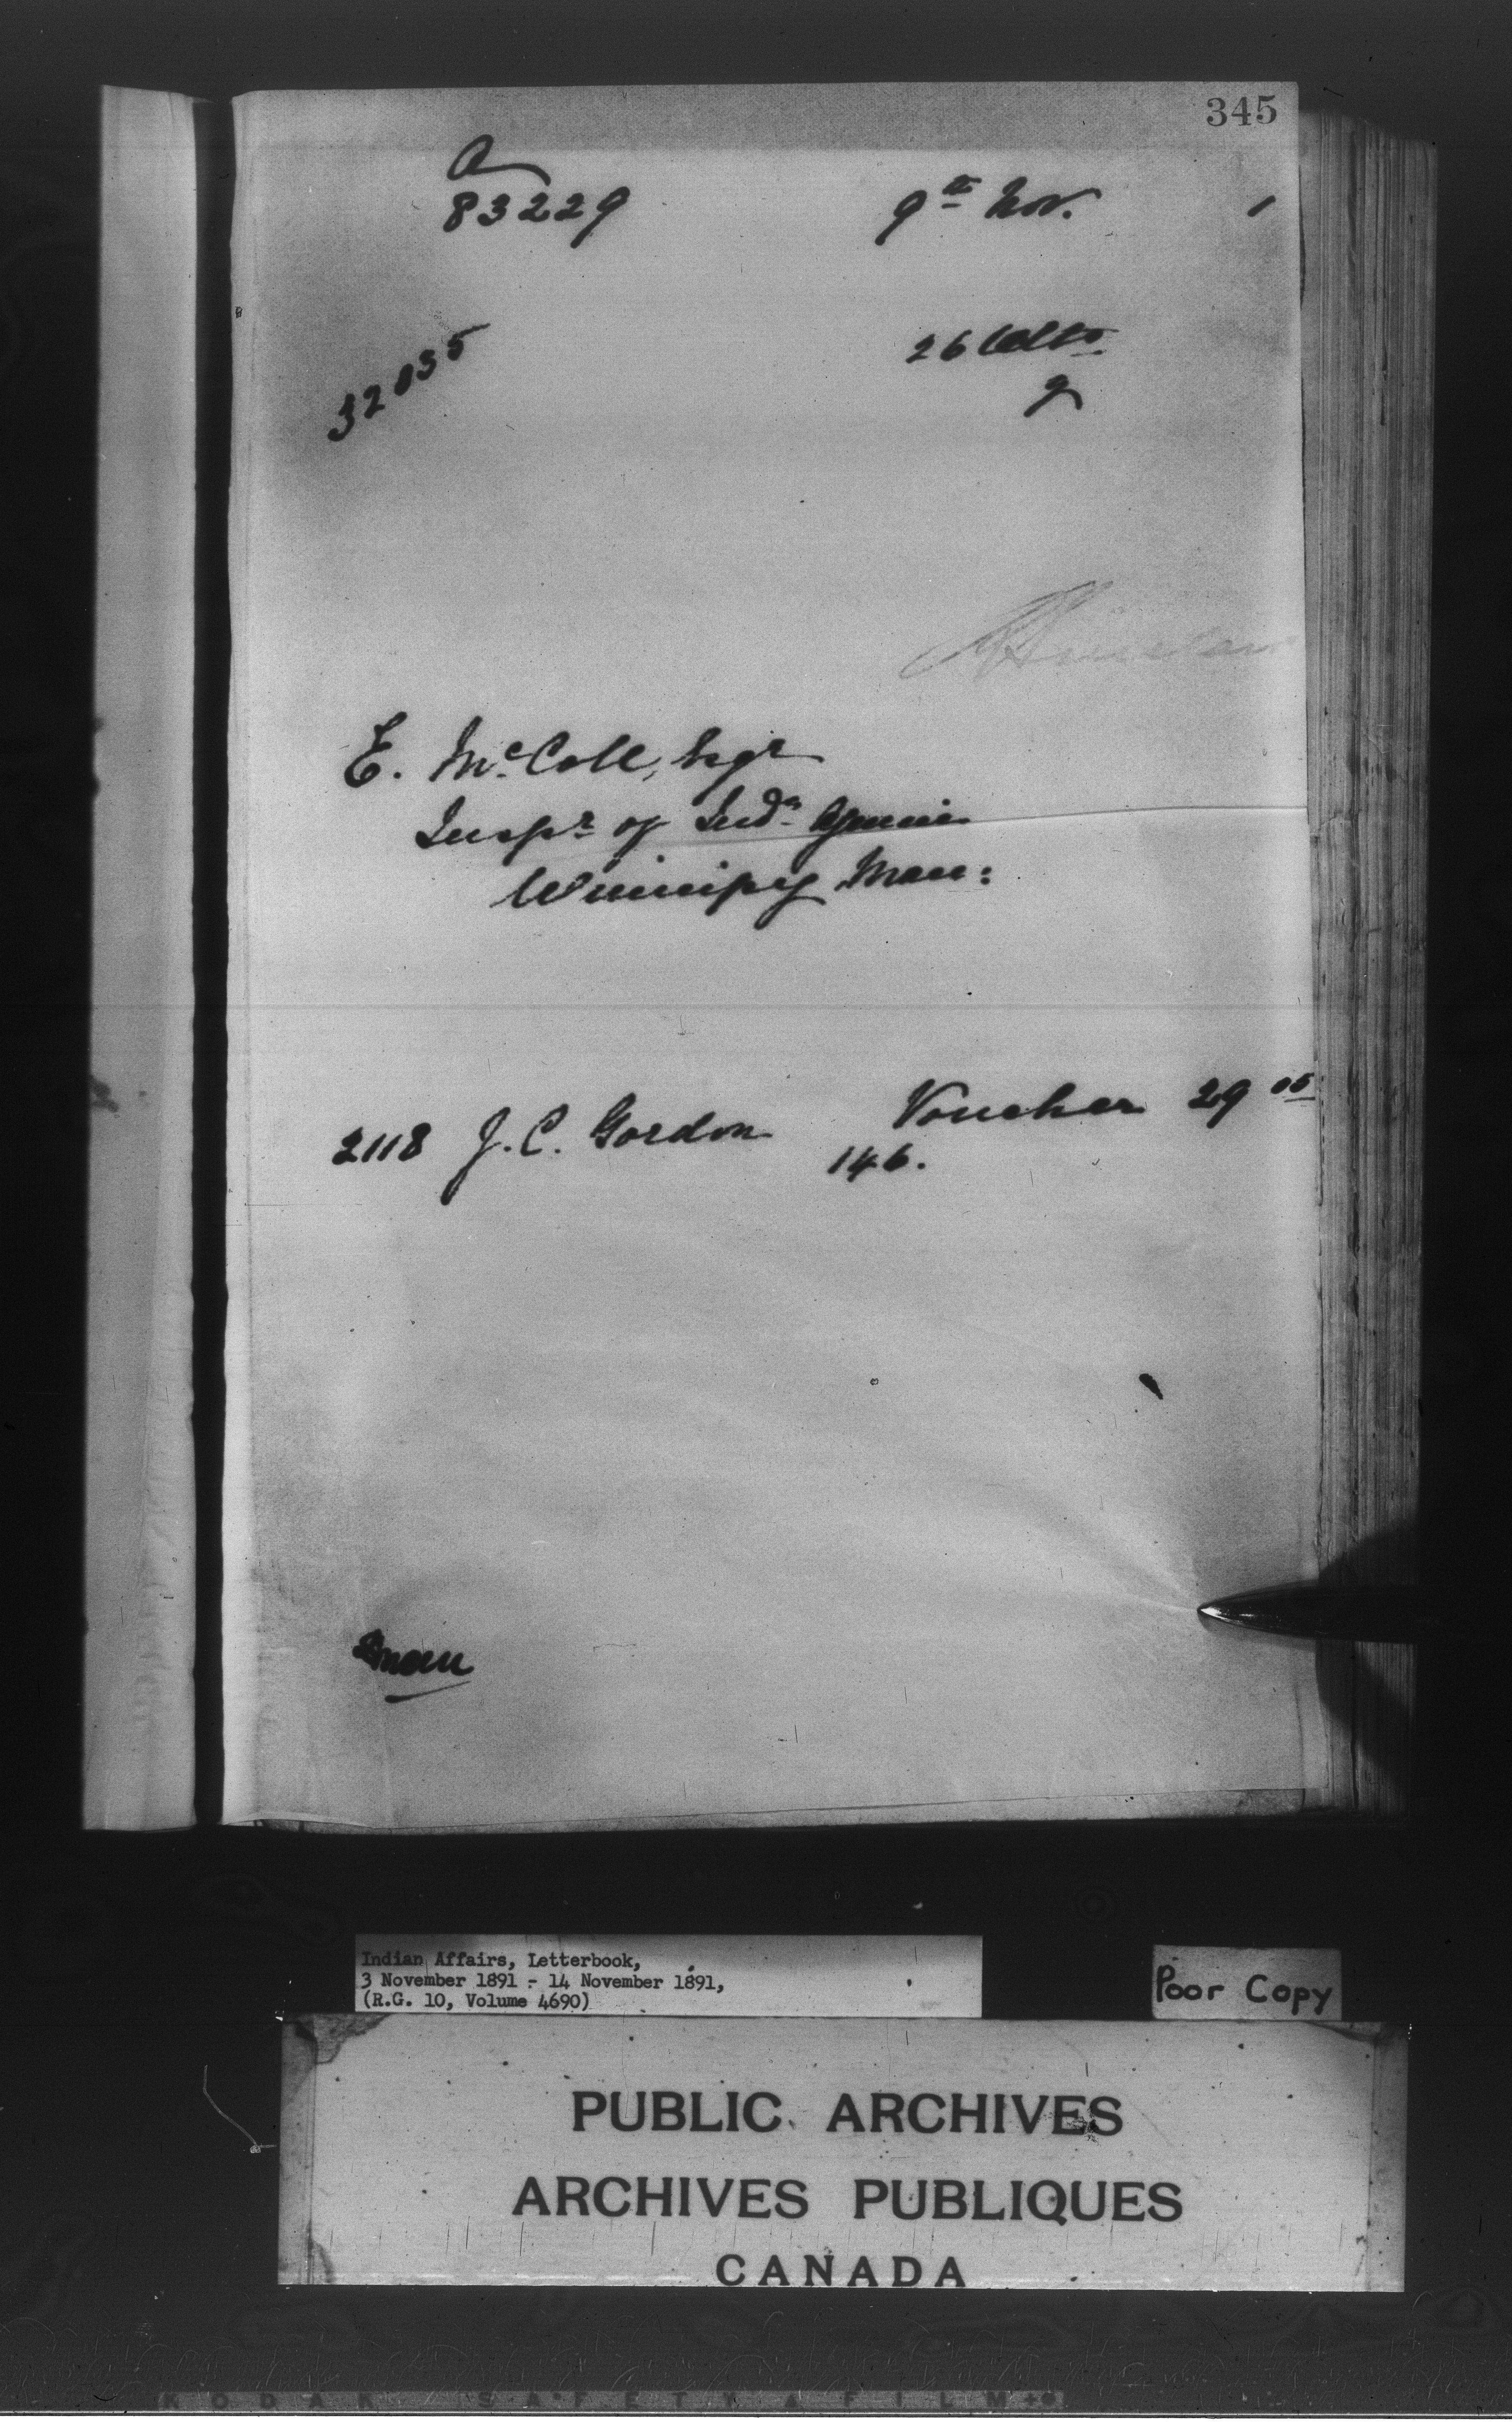 345
a
83229 9th Nov. 1
32035 26 Ulto
9
E. McColl, Esqr
Inspr of Indn Agencies
Winnipeg Man:
2118 J. C. Gordon Voucher 29 05
146.
Indian Affairs, Letterbook,
3 November 1891 - 14 November 1891,
(R.G. 10, Volume 4690)
Poor Copy
PUBLIC ARCHIVES
ARCHIVES PUBLIQUES
CANADA
KODAK SAFETY FILM